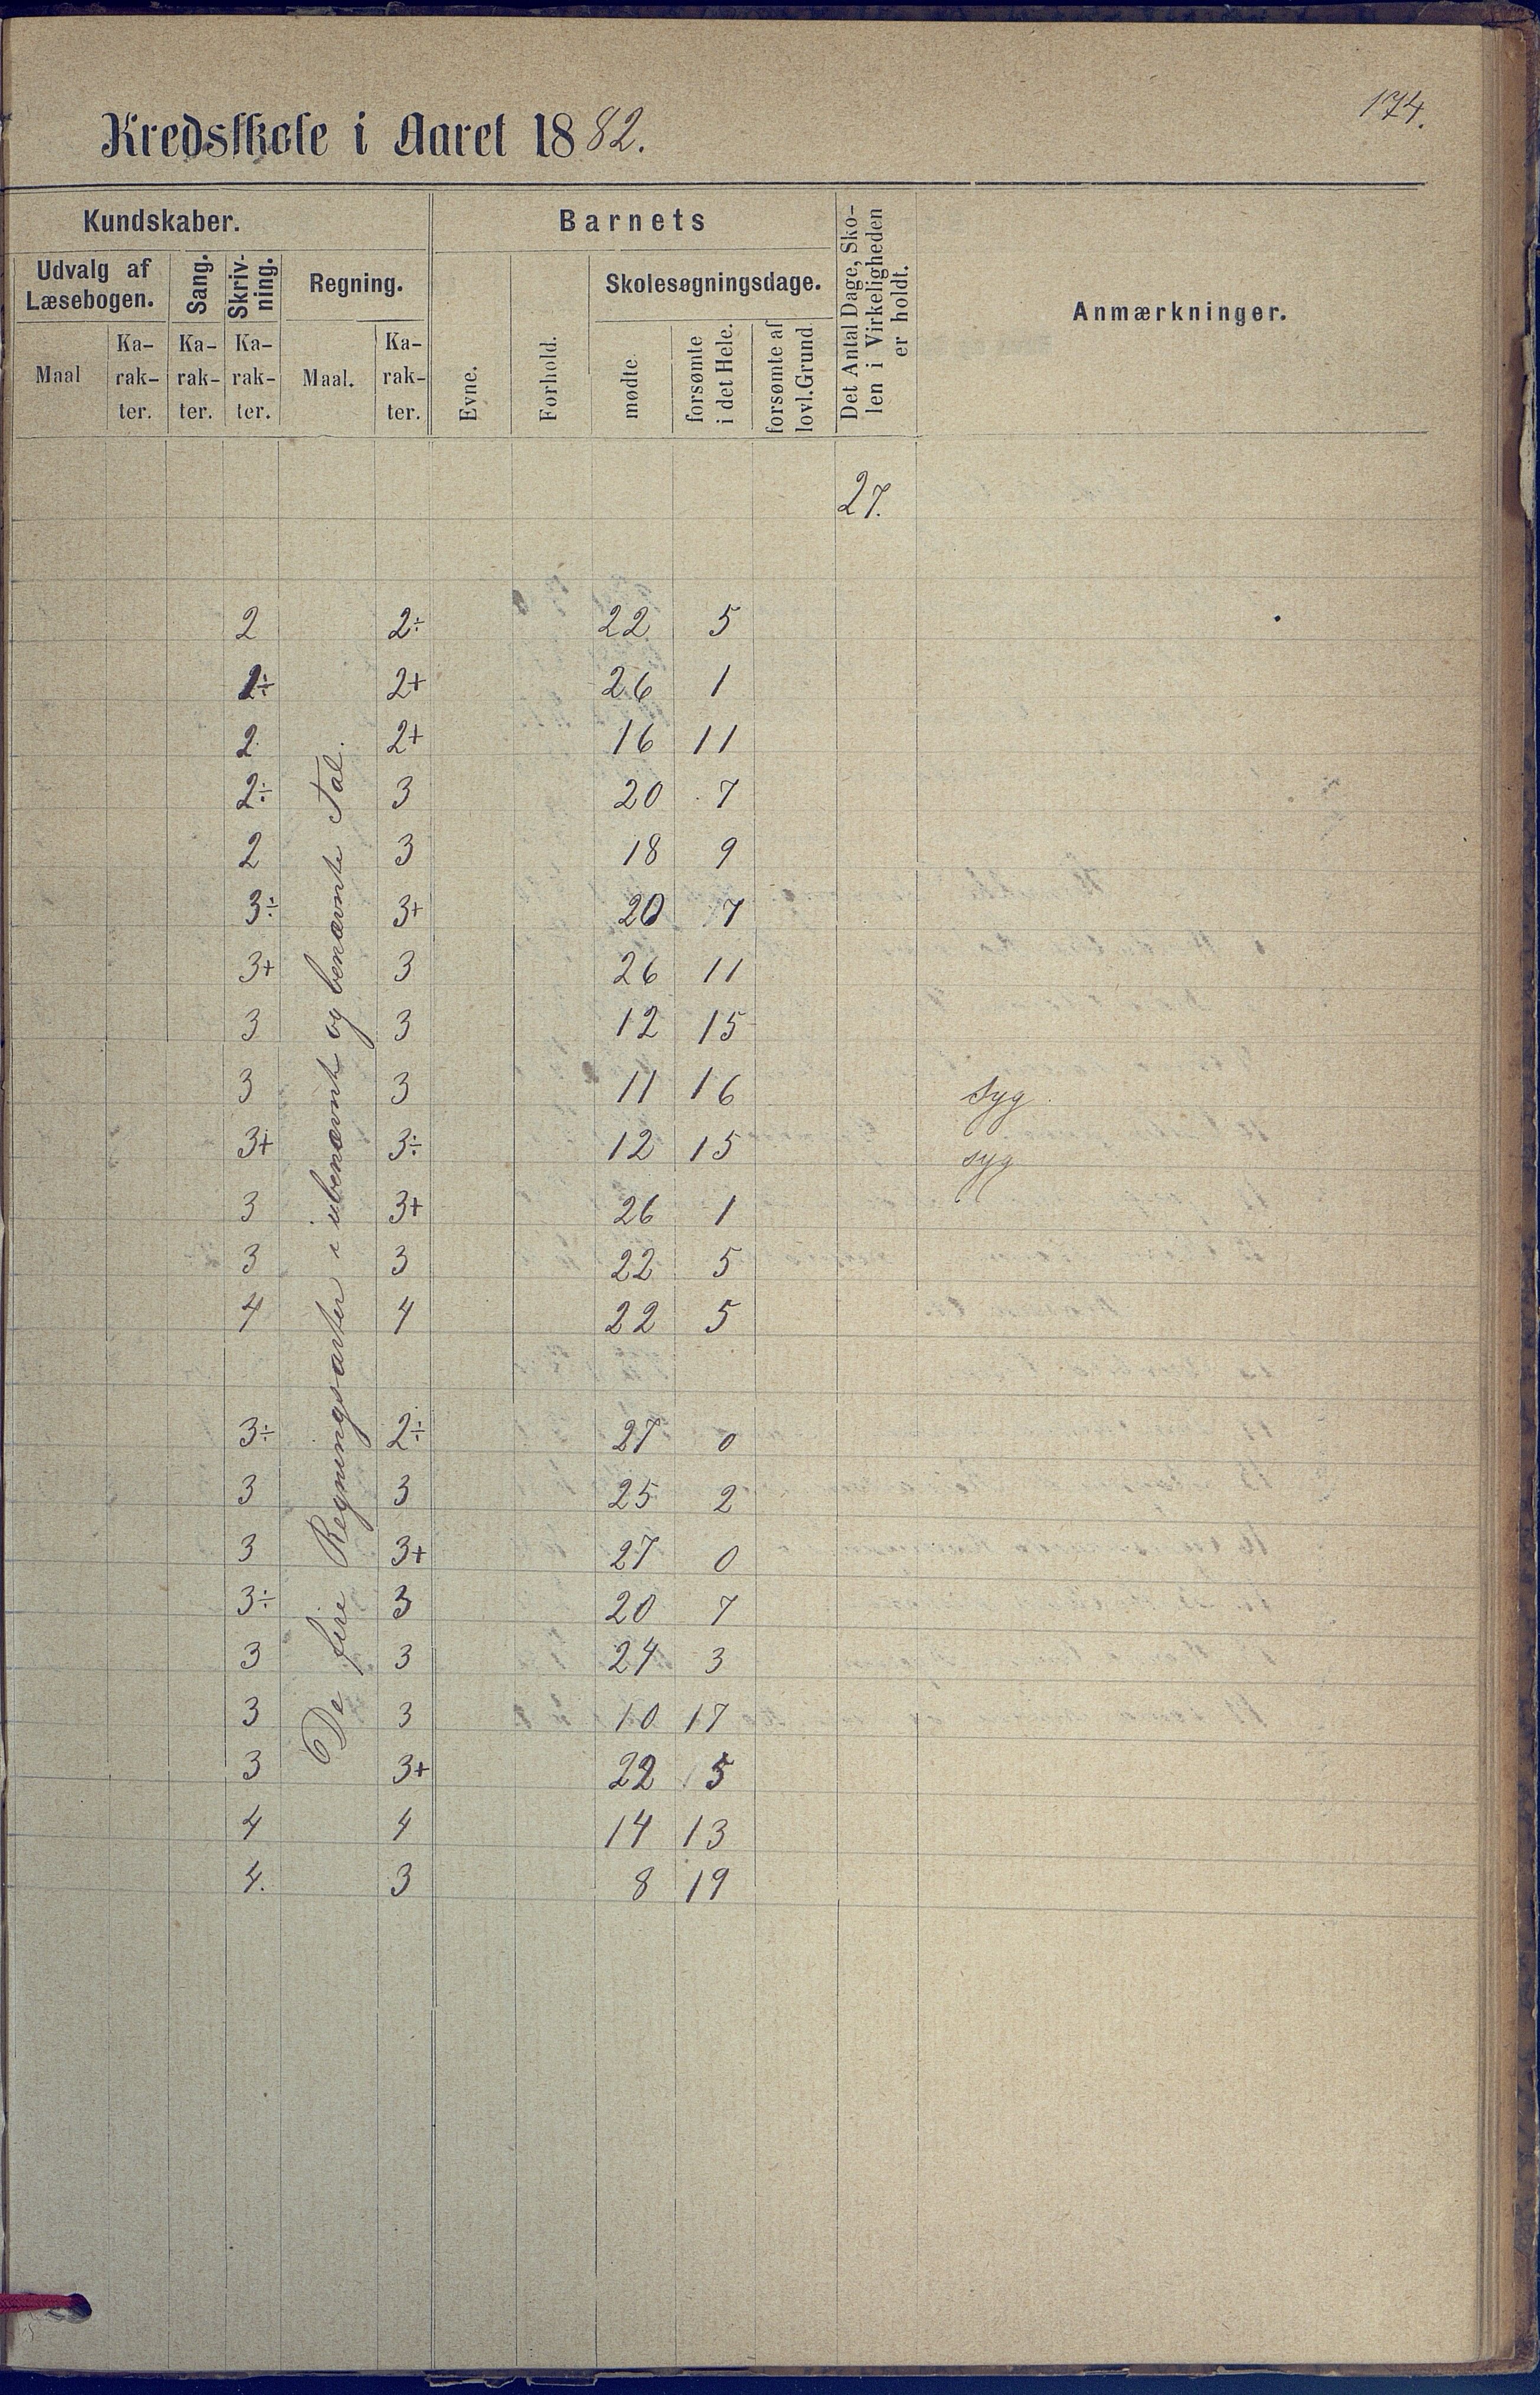 174.
Kredsskole i Aaret 1882.
Kundskaber.
Barnets
Det Antal Dage, Sko-
len i Virkeligheden
er holdt.
Anmærkninger.
Udvalg af
Læsebogen.
Sang.
Skriv-
ning.
Regning.
Evne.
Forhold.
Skolesøgningsdage.
Maal
Ka-
rak-
ter.
Ka-
rak-
ter.
Ka-
rak-
ter.
Maal.
Ka-
rak-
ter.
mødte
forsømte
i det Hele.
forsømte af
lovl. Grund
27.
De fire Regningsarter i ubenævnte og benævnte Tal.
2 2÷ 22 5
2÷ 2+ 26 1
2 2+ 16 11
2÷ 3 20 7
2 3 18 9
3÷ 3+ 20 7
3+ 3 26 11
3 3 12 15
3 3 11 16 syg
3+ 3÷ 12 15 syg
3 3+ 26 1
3 3 22 5
4 4 22 5
3÷ 2÷ 27 0
3 3 25 2
3 3+ 27 0
3÷ 3 20 7
3 3 24 3
3 3 10 17
3 3+ 22 5
4 4 14 13
4. 3 8 19